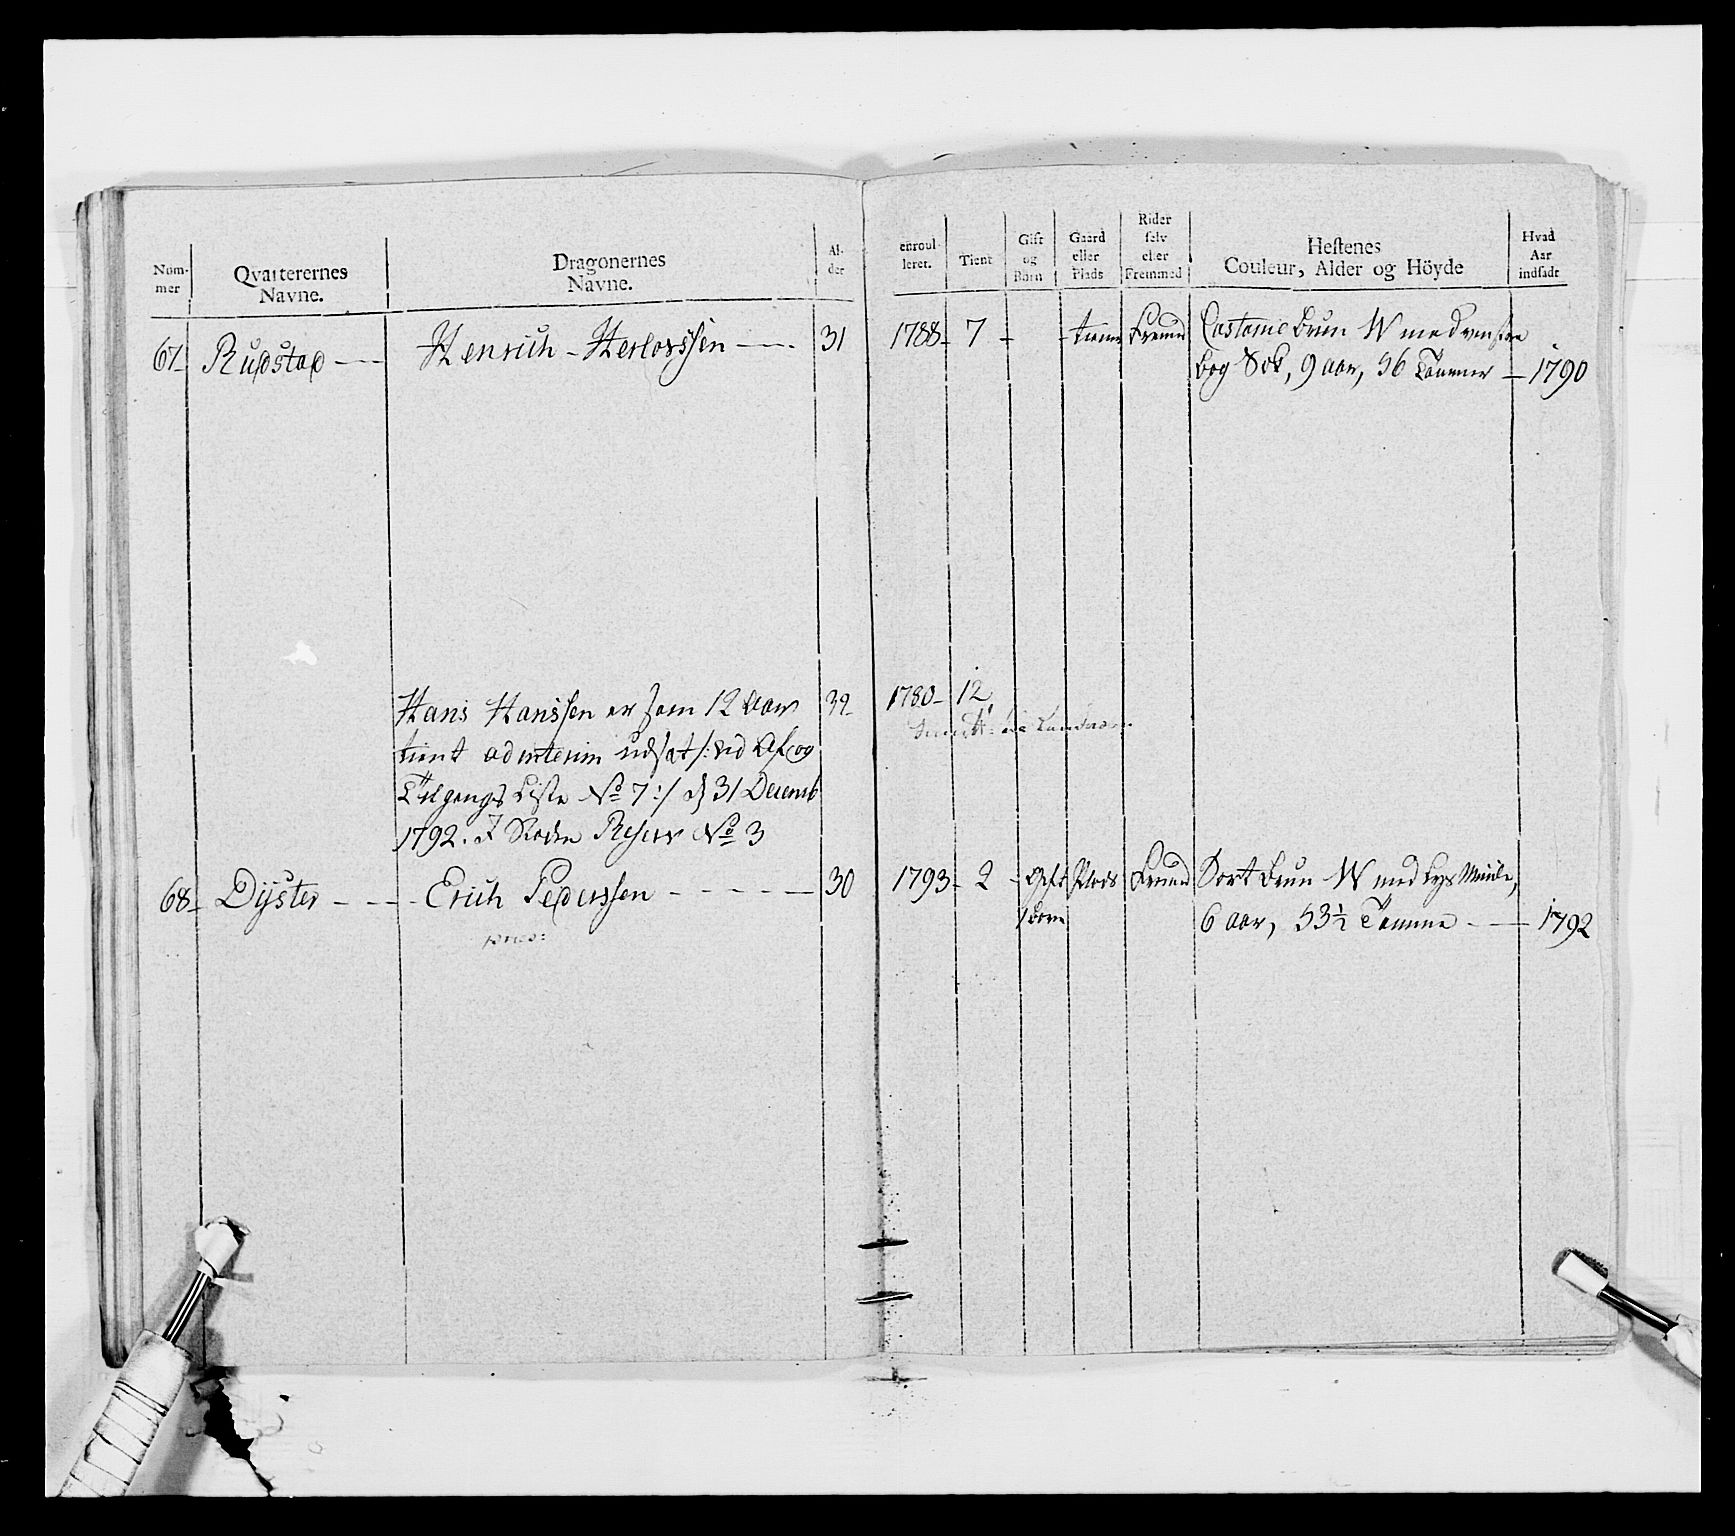 Nom-
mer
Qvarterernes
Navne.
Dragonernes
Navne.
Al-
der
enroul-
leret.
Tient
Gift
og
Börn
Gaard
eller
Plads
Rider
selv
eller
Fremmed
Hestenes
Couleur, Alder og Höyde
Hvad
Aar
indsadt
67 Rudstad Henrich Herlovssen 31 1788 7 tienner Fremd Castanie bruun W med venstre
bag Sok, 9 aar, 56 Tommer 1790
Hans Hanssen er som 12 Aars 32 1780 12
tient ad interim udsat /: vid Af og
Tilgangs Liste No 7 :/ d 31 Decemb
1792. I Steden Reserv No 3
68 Dyster Erich Pederssen 30 1793 2 Gift Plads Fremd Sort bruun W med lys Muule,
1 barn 6 aar, 53½ Tomme 1792